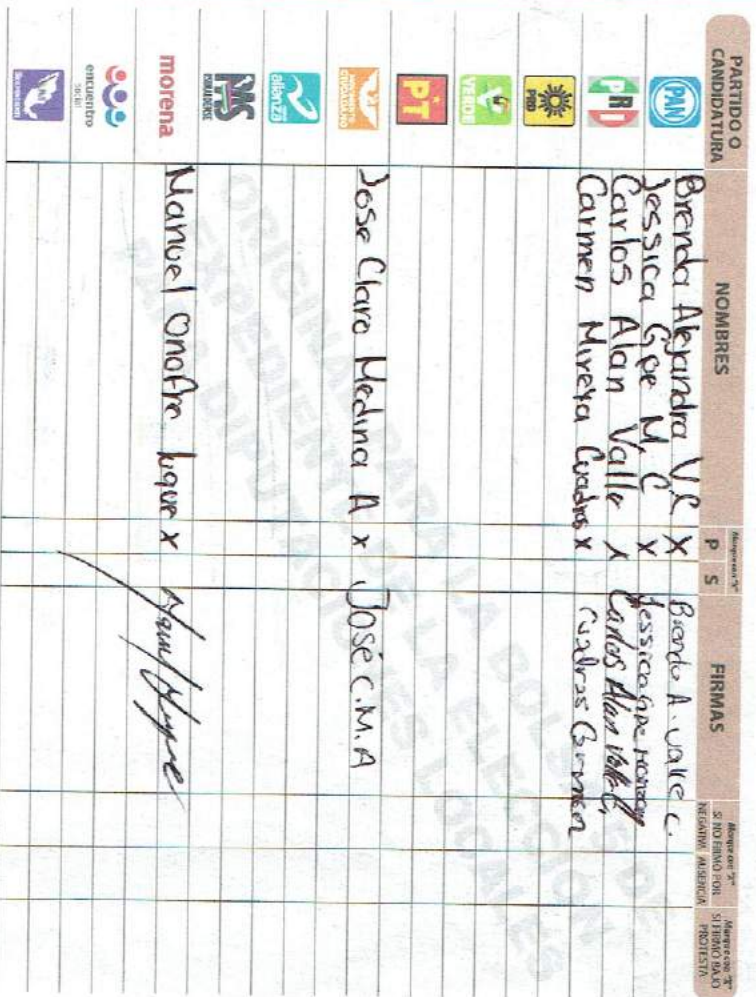 PARTIDO O CANDIDATURA
NOMBRES
Marque con "X"
P S
FIRMAS
Marque con "X" SI NO FIRMÓ POR
NEGATIVA AUSENCIA
Marque con "X" SI FIRMÓ BAJO PROTESTA
PAN
Brenda Alejandra V.C X Brenda A. Valle C.
Jessica Gpe M. C X Jessica Gpe
PRI
Carlos Alan Valle X Carlos Alan Valle
Carmen Mireya Cuadras X Cuadras Carmen
PRD
VERDE
PT
MOVIMIENTO CIUDADANO
Jose Claro Medina A x José C. M. A
alianza
PAS
SINALOENSE
morena
Manuel Onofre Luque x
encuentro social
INDEPENDIENTE
ORIGINAL PARA LA BOLSA DE
EXPEDIENTE DE LA ELECCIÓN
PARA DIPUTACIONES LOCALES